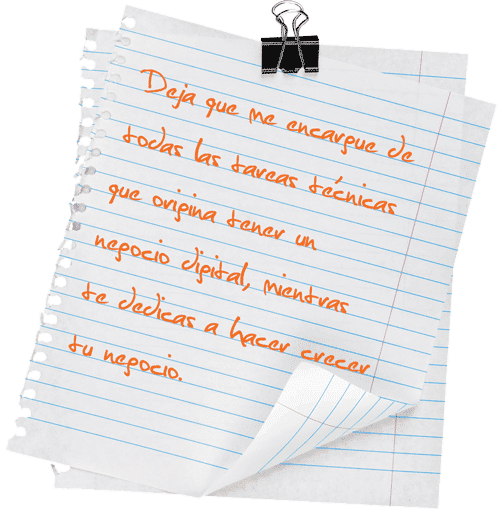 Deja que me encargue de
todas las tareas técnicas
que origina tener un
negocio digital, mientras
te dedicas a hacer crecer
tu negocio.